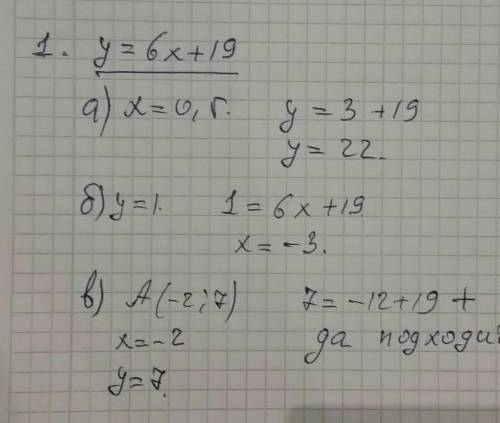 1. y = 6x + 19
а) x = 0,5. y = 3 + 19
y = 22.
б) y = 1. 1 = 6x + 19
x = -3.
в) A (-2; 7) 7 = -12 + 19 +
x = -2 да подходит
y = 7.